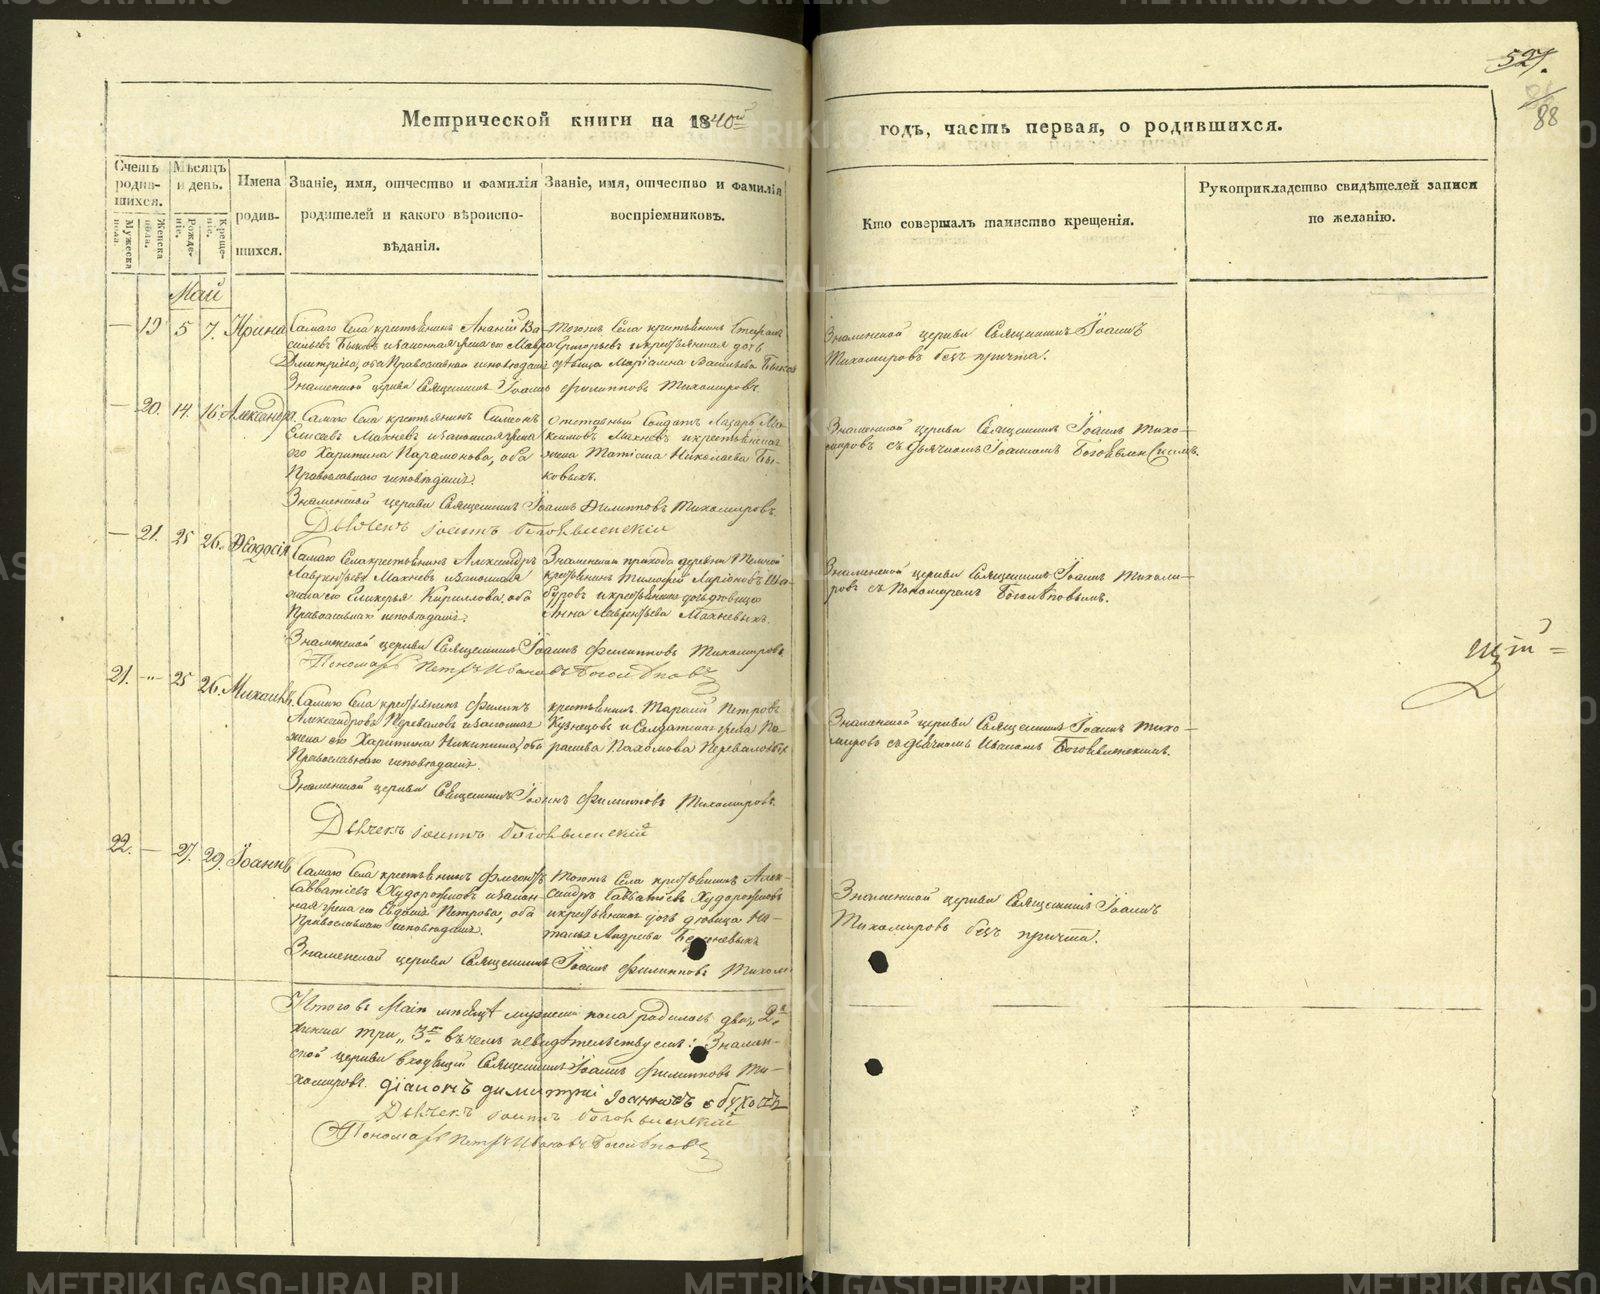 527.
88
Метрической книги на 1840й
годъ, часть первая, о родившихся.
Счетъ родив-шихся.
Мужеска пола.
Женска пола.
Мѣсяцъ и день.
Рожде-ніе.
Креще-ніе.
Имена родив-шихся.
Званіе, имя, отчество и фамилія
родителей и какого вѣроиспо-
вѣданія.
Званіе, имя, отчество и фамилія
воспріемниковъ.
Кто совершалъ таинство крещенія.
Рукоприкладство свидѣтелей записи
по желанію.
Май
— 19 5 7. Ирина
Самаго Села крестьянинъ Ананій Ва-
сильевъ Быковъ и законная жена его Мавра
Дмитріева, оба Православнаго исповѣданія
Тогожъ Села крестьянинъ Стефанъ
Григорьевъ и крестьянская дочь
дѣвица Маріамна Васильева Быкова
Знаменской церкви Священникъ Іоаннъ Филипповъ Тихомировъ.
Знаменской церкви Священникъ Іоаннъ
Тихомировъ безъ причта.
— 20. 14. 16. Александра
Самаго Села крестьянинъ Симеонъ
Елисеевъ Махневъ и законная жена
его Харитина Парамонова, оба
Православнаго исповѣданія.
Отставный Солдатъ Лазарь Ма-
ксимовъ Махневъ и крестьянская
жена Татіана Николаева Бы-
ковыхъ.
Знаменской церкви Священникъ Іоаннъ Филипповъ Тихомировъ.
Дьячекъ Іоаннъ Богоявленскій
Знаменской церкви Священникъ Іоаннъ Тихо-
мировъ съ Дьячкомъ Іоанномъ Богоявленскимъ.
— 21. 25 26. Ѳеодосія
Самаго Села крестьянинъ Александръ
Лаврентьевъ Махневъ и законная
жена его Гликерья Кириллова, оба
Православнаго исповѣданія.
Знаменскаго прихода деревни
крестьянинъ Тимофей Ларіоновъ
и крестьянская дочь дѣвица
Анна Лаврентьева Махневыхъ.
Знаменской церкви Священникъ Іоаннъ Филипповъ Тихомировъ
Пономарь Петръ Ивановъ Боголѣповъ
Знаменской церкви Священникъ Іоаннъ Тихоми-
ровъ съ Пономаремъ Боголѣповымъ.
21. — 25 26. Михаилъ
Самаго Села крестьянинъ Филипъ
Александровъ Переваловъ и законная
жена его Харитина Никитина, оба
Православнаго исповѣданія.
крестьянинъ Тарасій Петровъ
Кузнецовъ и Солдатская жена Па-
расква Пахомова Переваловыхъ
Знаменской церкви Священникъ Іоаннъ Филипповъ Тихомировъ.
Дьячекъ Іоаннъ Богоявленскій
Знаменской церкви Священникъ Іоаннъ Тихо-
мировъ съ Дьячкомъ Иваномъ Богоявленскимъ.
22. — 27. 29. Іоаннъ
Самаго Села крестьянинъ Флегонтъ
Савватіевъ Худорожковъ и закон-
ная жена его Евдокія Петрова, оба
Православнаго исповѣданія.
Тогожъ Села крестьянинъ Алек-
сандръ Савватіевъ Худорожковъ
и крестьянская дочь дѣвица На-
талья Андреева
Знаменской церкви Священникъ Іоаннъ Филипповъ Тихоми
Знаменской церкви Священникъ Іоаннъ
Тихомировъ безъ причта.
Итого въ Маіѣ мѣсяцѣ мужеска пола родилось два, 2.
Женска три, 3. въ чемъ и свидѣтельствуемъ: Знамен-
ской церкви Священникъ Іоаннъ Филипповъ Ти-
хомировъ. Діаконъ Димитрій Іоанновъ
Дьячекъ Іоаннъ Богоявленскій
Пономарь Петръ Ивановъ Боголѣповъ